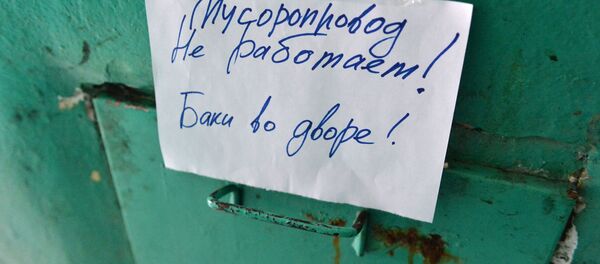 Мусоропровод
Не работает!
Баки во дворе!